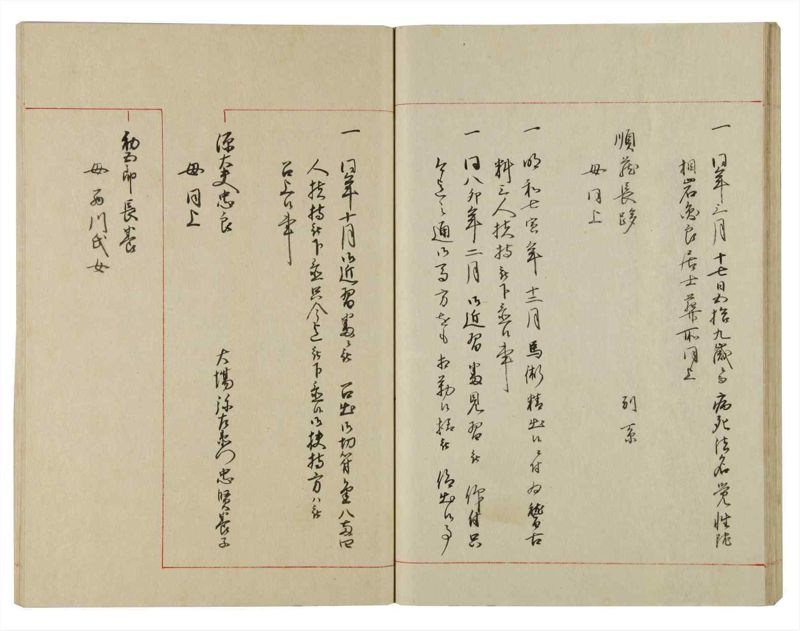 一 同年三月十七日五拾九歳ニ而病死法名覚性院
相岩急良居士葬所同上
順蔵長跡 別系
母同上
一 明和七寅年十二月馬術精出候ニ付為稽古
料三人扶持被下置候事
一 同八卯年二月御近習番見習被 仰付只
今迄之通御馬方をも相勤候様被 仰出候事
一 同年十月御近習番被 召出御切符金八両四
人扶持被下置只今迄被下置候御扶持方ハ被
召上候事
源太夫忠良 大場弥右衛門忠賢養子
母同上
勤五郎長養
母 石川氏女